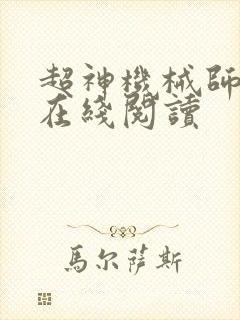 超神機械師
在綫閱讀
馬尔萨斯